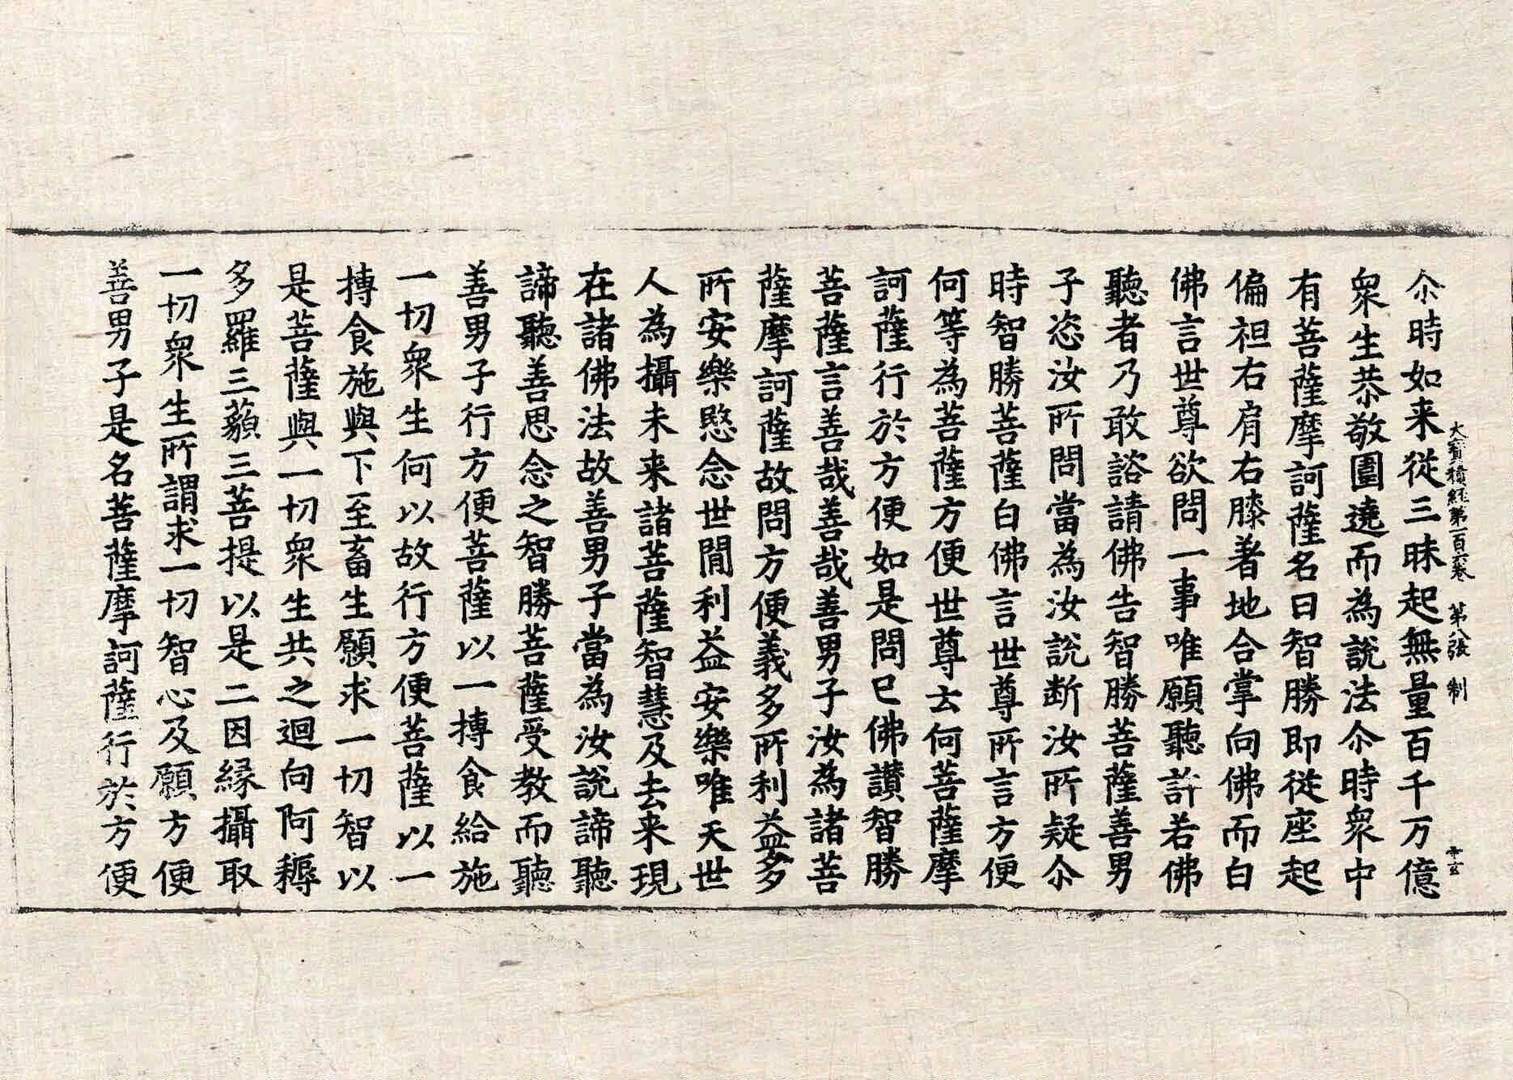 大寳積經第一百六卷 第八張 制
尒時如来從三昧起無量百千万億
衆生恭敬圍遶而為說法尒時衆中
有菩薩摩訶薩名曰智勝即從座起
偏袒右肩右膝著地合掌向佛而白
佛言世尊欲問一事唯願聽許若佛
聽者乃敢諮請佛告智勝菩薩善男
子恣汝所問當為汝說断汝所疑尒
時智勝菩薩白佛言世尊所言方便
何等為菩薩方便世尊云何菩薩摩
訶薩行於方便如是問已佛讃智勝
菩薩言善哉善哉善男子汝為諸菩
薩摩訶薩故問方便義多所利益多
所安樂愍念世閒利益安樂唯天世
人為攝未来諸菩薩智慧及去来現
在諸佛法故善男子當為汝說諦聽
諦聽善思念之智勝菩薩受教而聽
善男子行方便菩薩以一摶食給施
一切衆生何以故行方便菩薩以一
摶食施與下至畜生願求一切智以
是菩薩與一切衆生共之迴向阿耨
多羅三藐三菩提以是二因緣攝取
一切衆生所謂求一切智心及願方便
善男子是名菩薩摩訶薩行於方便